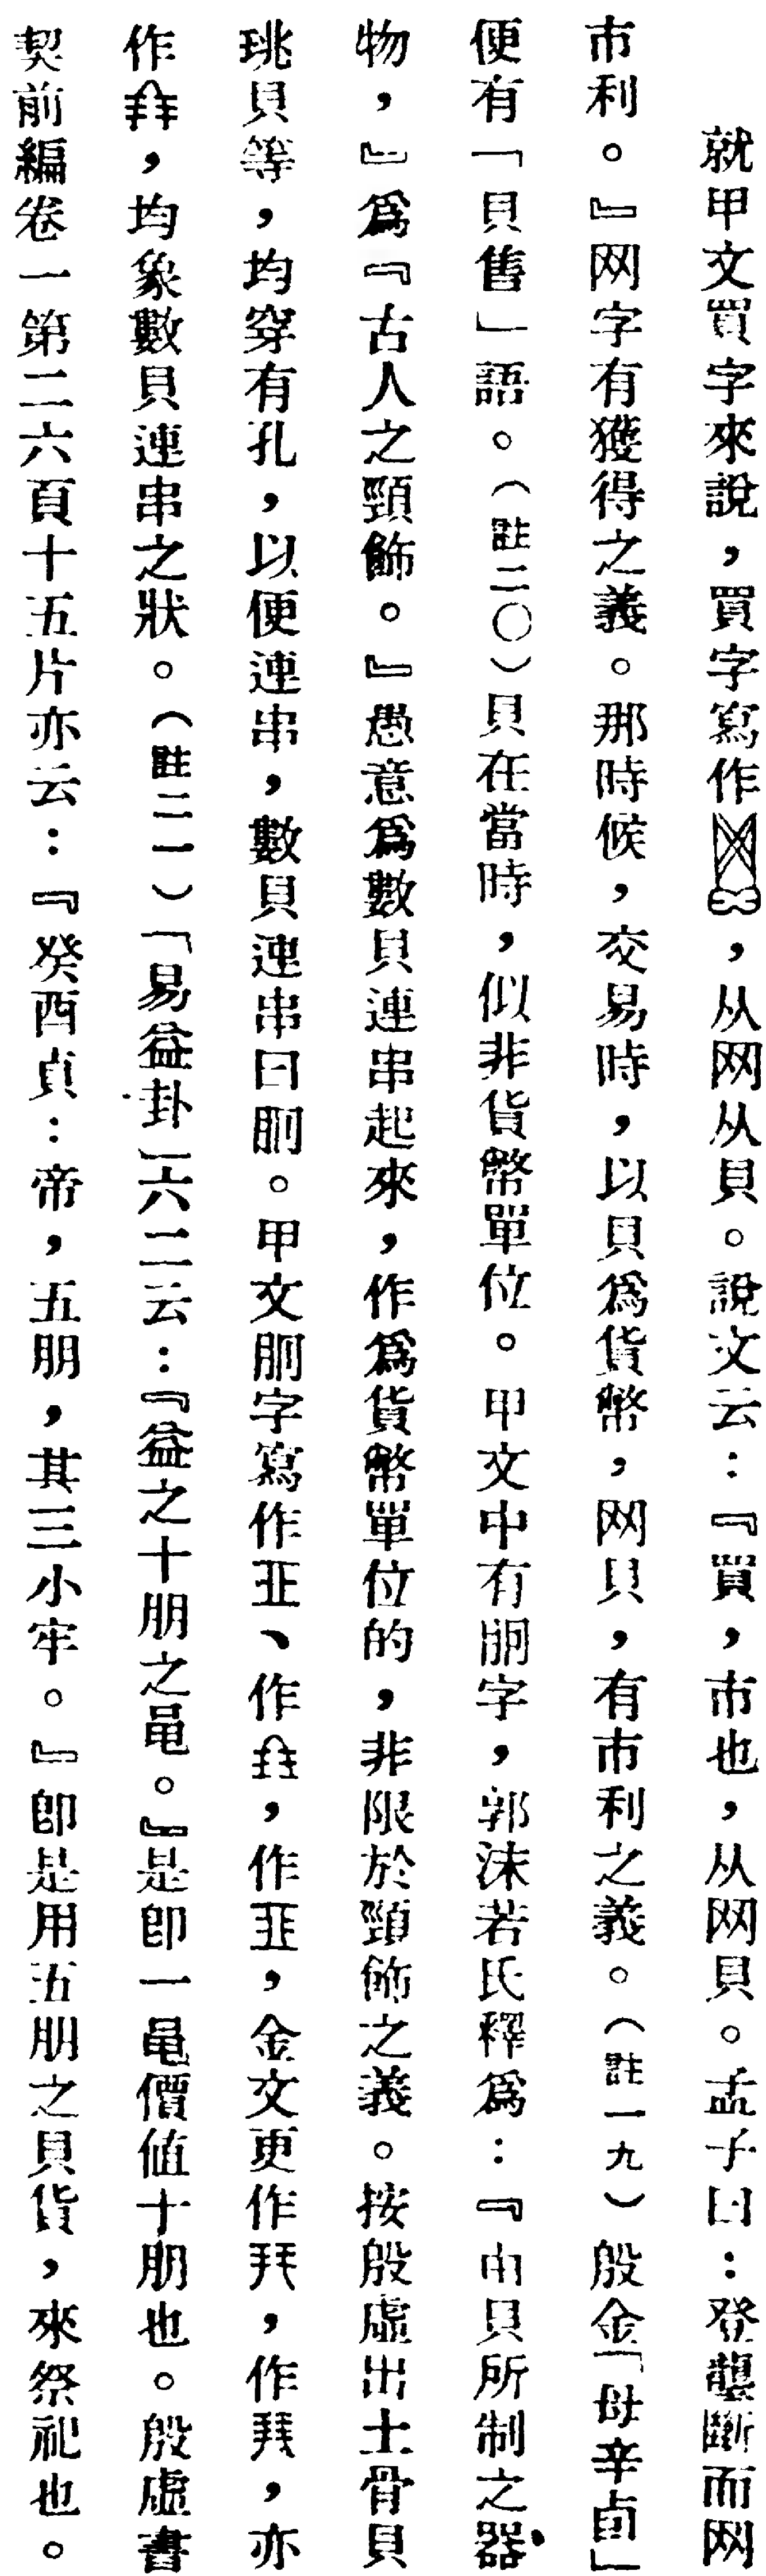 就甲文買字來說，買字寫作，从网从貝。說文云：『買，市也，从网貝。孟子曰：登龍斷而网
市利。』网字有獲得之義。那時候，交易時，以貝爲貨幣，网貝，有市利之義。（註一九）殷金「母辛卣」
便有「貝售」語。（註二〇）貝在當時，似非貨幣單位。甲文中有朋字，郭沫若氏釋爲：『由貝所制之器
物，』爲『古人之頸飾。』愚意爲數貝連串起來，作爲貨幣單位的，非限於頸飾之義。按殷虛出土骨貝
珧貝等，均穿有孔，以便連串，數貝連串曰朋。甲文朋字寫作、作，作，金文更作，作，亦
作，均象數貝連串之狀。（註二一）「易益卦」六二云：『益之十朋之黽。』是卽一黽價値十朋也。殷虛書
契前編卷一第二六頁十五片亦云：『癸酉貞：帝，五朋，其三小牢。』卽是用五朋之貝貨，來祭祀也。